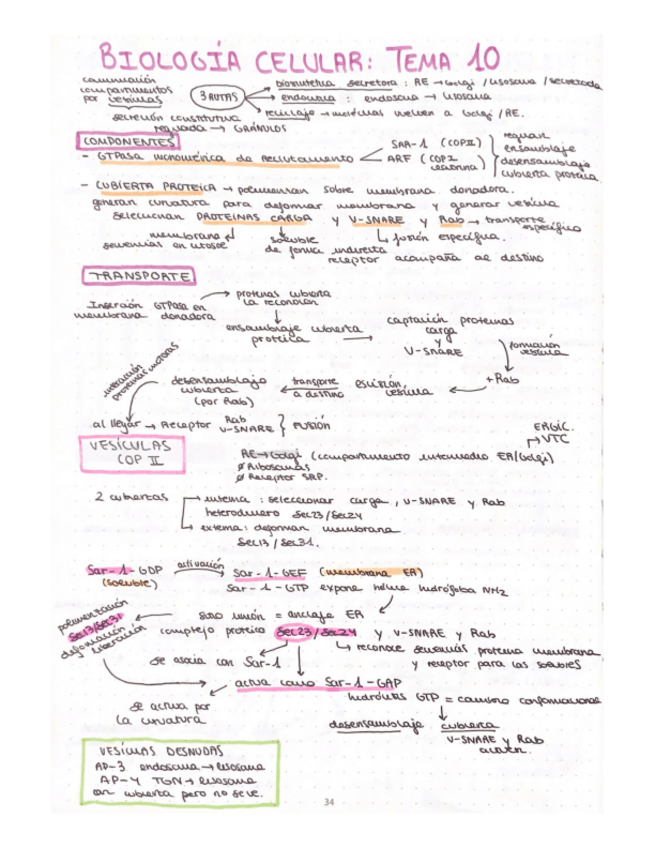 BIOLOGÍA CELULAR: TEMA 10
comunicación
compartimentos
por vesículas
3 RUTAS
biosintética secretora : RE → Golgi / lisosoma / secretada
endocítica : endosoma → lisosoma
reciclaje → moléculas vuelven a Golgi / RE.
secreción constitutiva
regulada → GRÁNULOS
COMPONENTES
- GTPasa monomérica de reclutamiento
SAR-1 (COPII)
ARF (COPI
clatrina)
regulan
ensamblaje
desensamblaje
cubierta proteica
- CUBIERTA PROTEICA → polimerizan sobre membrana donadora.
generan curvatura para deformar membrana y generar vesícula
seleccionan PROTEINAS CARGA y V-SNARE y Rab → transporte
específico
membrana
señales en citosol
soluble
de forma indirecta
receptor acompaña al destino
fusión específica.
TRANSPORTE
Inserción GTPasa en
membrana donadora
proteinas cubierta
la reconocen
ensamblaje cubierta
proteica
captación proteinas
carga
y
V-SNARE
formación
vesícula
+ Rab
escisión
vesícula
transporte
a destino
desensamblaje
cubierta
(por Rab)
interacción
proteinas motoras
al llegar → Receptor
Rab
V-SNARE
FUSIÓN
VESÍCULAS
COP II
ERGIC.
VTC
RE → Golgi (compartimento intermedio ER/Golgi)
Ø Ribosomas
Ø Receptor SRP.
2 cubiertas
interna : seleccionar carga, V-SNARE y Rab
heterodímero Sec23/Sec24
externa : deforman membrana
Sec13/Sec31.
Sar-1-GDP
(soluble)
activación
Sar-1-GEF (membrana ER)
Sar-1-GTP expone hélice hidrófoba NH2
sitio unión = anclaje ER
polimerización
Sec13/Sec31
deformación
liberación
complejo proteico Sec23/Sec24 y V-SNARE y Rab
reconoce señales proteina membrana
y receptor para las solubles
se asocia con Sar-1
actúa como Sar-1-GAP
se activa por
la curvatura
hidrólisis GTP = cambio conformacional
desensamblaje cubierta
V-SNARE y Rab
VESÍCULAS DESNUDAS
AP-3 endosoma → lisosoma
AP-4 TGN → lisosoma
con cubierta pero no se ve.
34